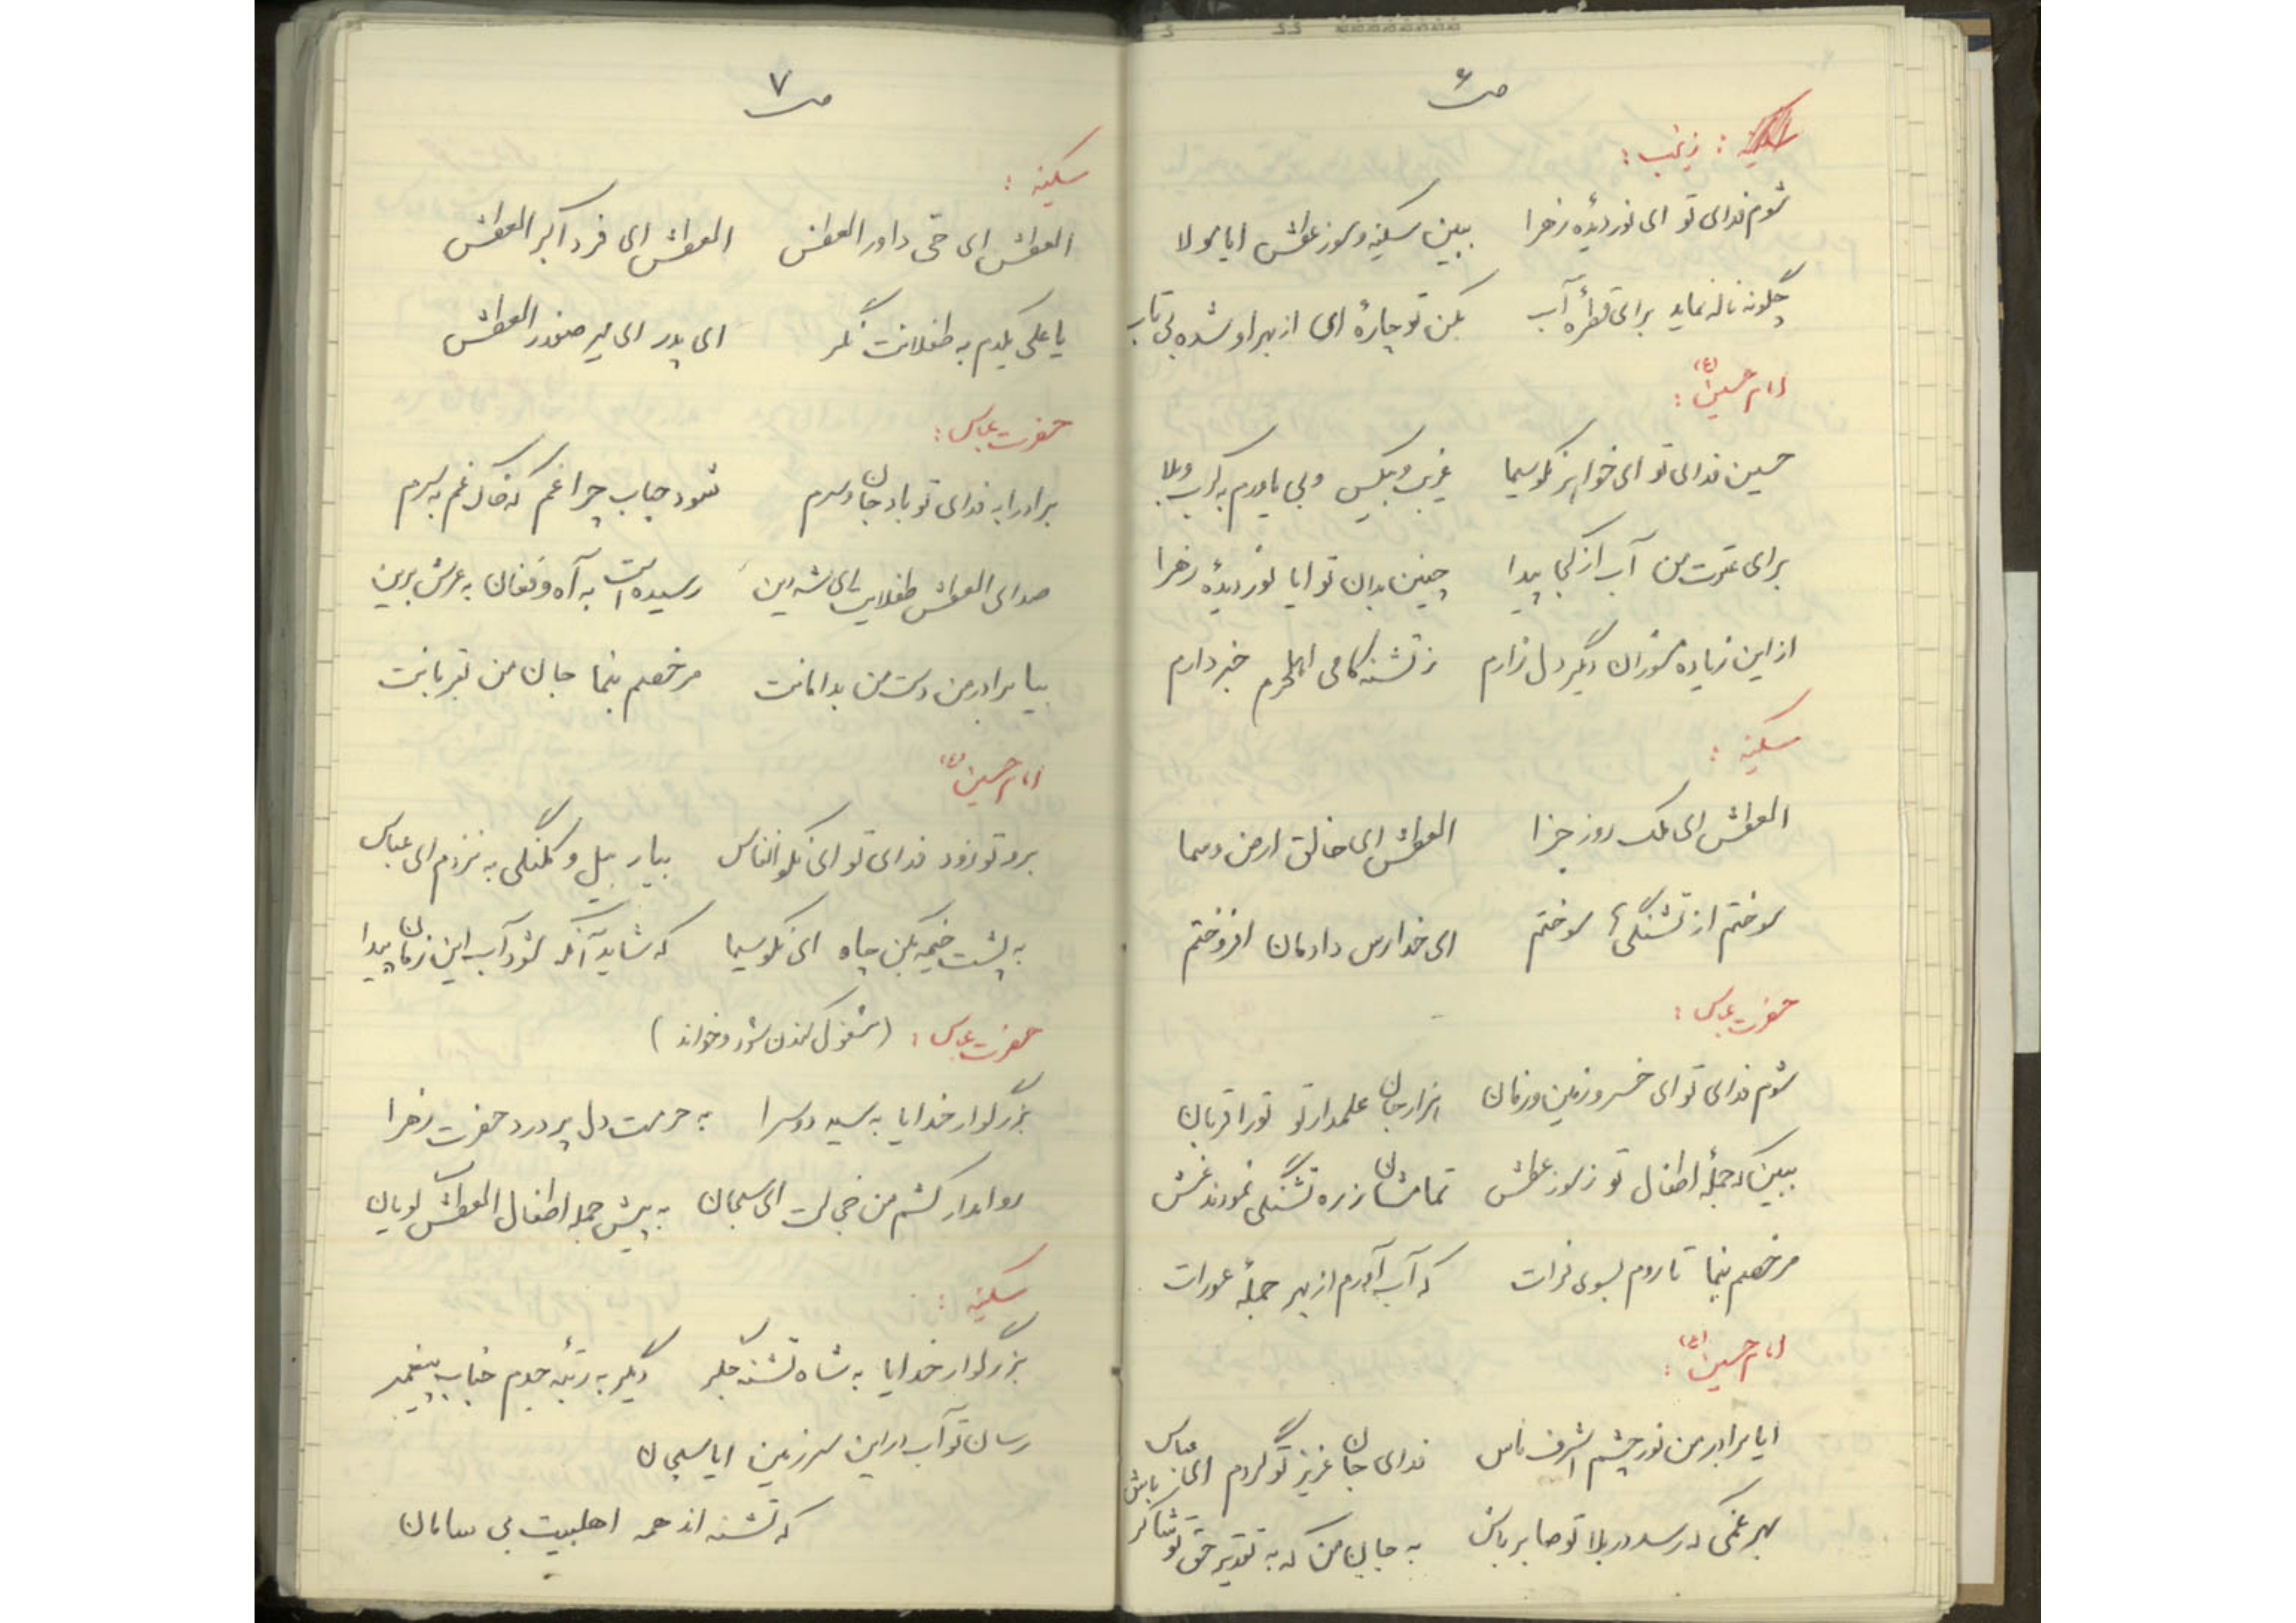 ص ۶
زینب :
شوم فدای تو ای نور دیدهٔ زهرا ببین سکینه و سوز عطش ایا مولا
چگونه ناله نماید برای قطرهٔ آب بکن تو چارهٔ ای از بهر او شده بی تاب
امام حسین (ع) :
حسین فدای تو ای خواهر نکو سیما غریب و بیکس و بی یاورم به کرب وبلا
برای عترت من آب از کجا پیدا چنین بدان تو ایا نور دیدهٔ زهرا
از این زیاده مسوزان دیگر دل زارم ز تشنه کامی اهلحرم خبر دارم
سکینه :
العطش ای ملک روز جزا العطش ای خالق ارض و سما
سوختم از تشنگی سوختم ای خدا رس دادمان افروختم
حضرت عباس :
شوم فدای تو ای خسرو زمین و زمان هزار جان علمدار تو تو را قربان
ببین که جملهٔ اطفال تو ز سوز عطش تمامشان ز ره تشنگی نمودند غش
مرخصم بنما تا روم بسوی فرات که آب آورم از بهر جملهٔ عورات
امام حسین (ع) :
ایا برادر من نور چشم اشرف ناس فدای جان عزیز تو گردم ای عباس
بهر غمی که رسد در بلا تو صابر باش به جان من که به تقدیر حق تو شاکر باش
ص ۷
سکینه :
العطش ای حی داور العطش العطش ای فرد اکبر العطش
یا علی یکدم به طفلانت نگر ای پدر ای میر صفدر العطش
حضرت عباس :
برادرا به فدای تو باد جان و سرم شود جناب چرا غم که خاک غم به سرم
صدای العطش طفلانت ای شه دین رسیده است به آه و فغان به عرش برین
بیا برادر من دست من بدامانت مرخصم بنما جان من بقربانت
امام حسین (ع)
برو تو زود فدای تو ای نکو انفاس بیار بیل و کلنگی به نزدم ای عباس
به پشت خیمه بکن چاه ای نکو سیما که شاید آنکه شود آب این زمان پیدا
حضرت عباس : (مشغول کندن شود و خواند)
بزرگوار خدایا به سید دو سرا به حرمت دل پر درد حضرت زهرا
روا مدار کشم من خجالت ای سبحان به پیش جمله اطفال العطش گویان
سکینه :
بزرگوار خدایا به شاه تشنه جگر دیگر به رتبهٔ جدم جناب پیغمبر
رسان تو آب در این سرزمین ایا سبحان
که تشنه اند همه اهلبیت بی سامان